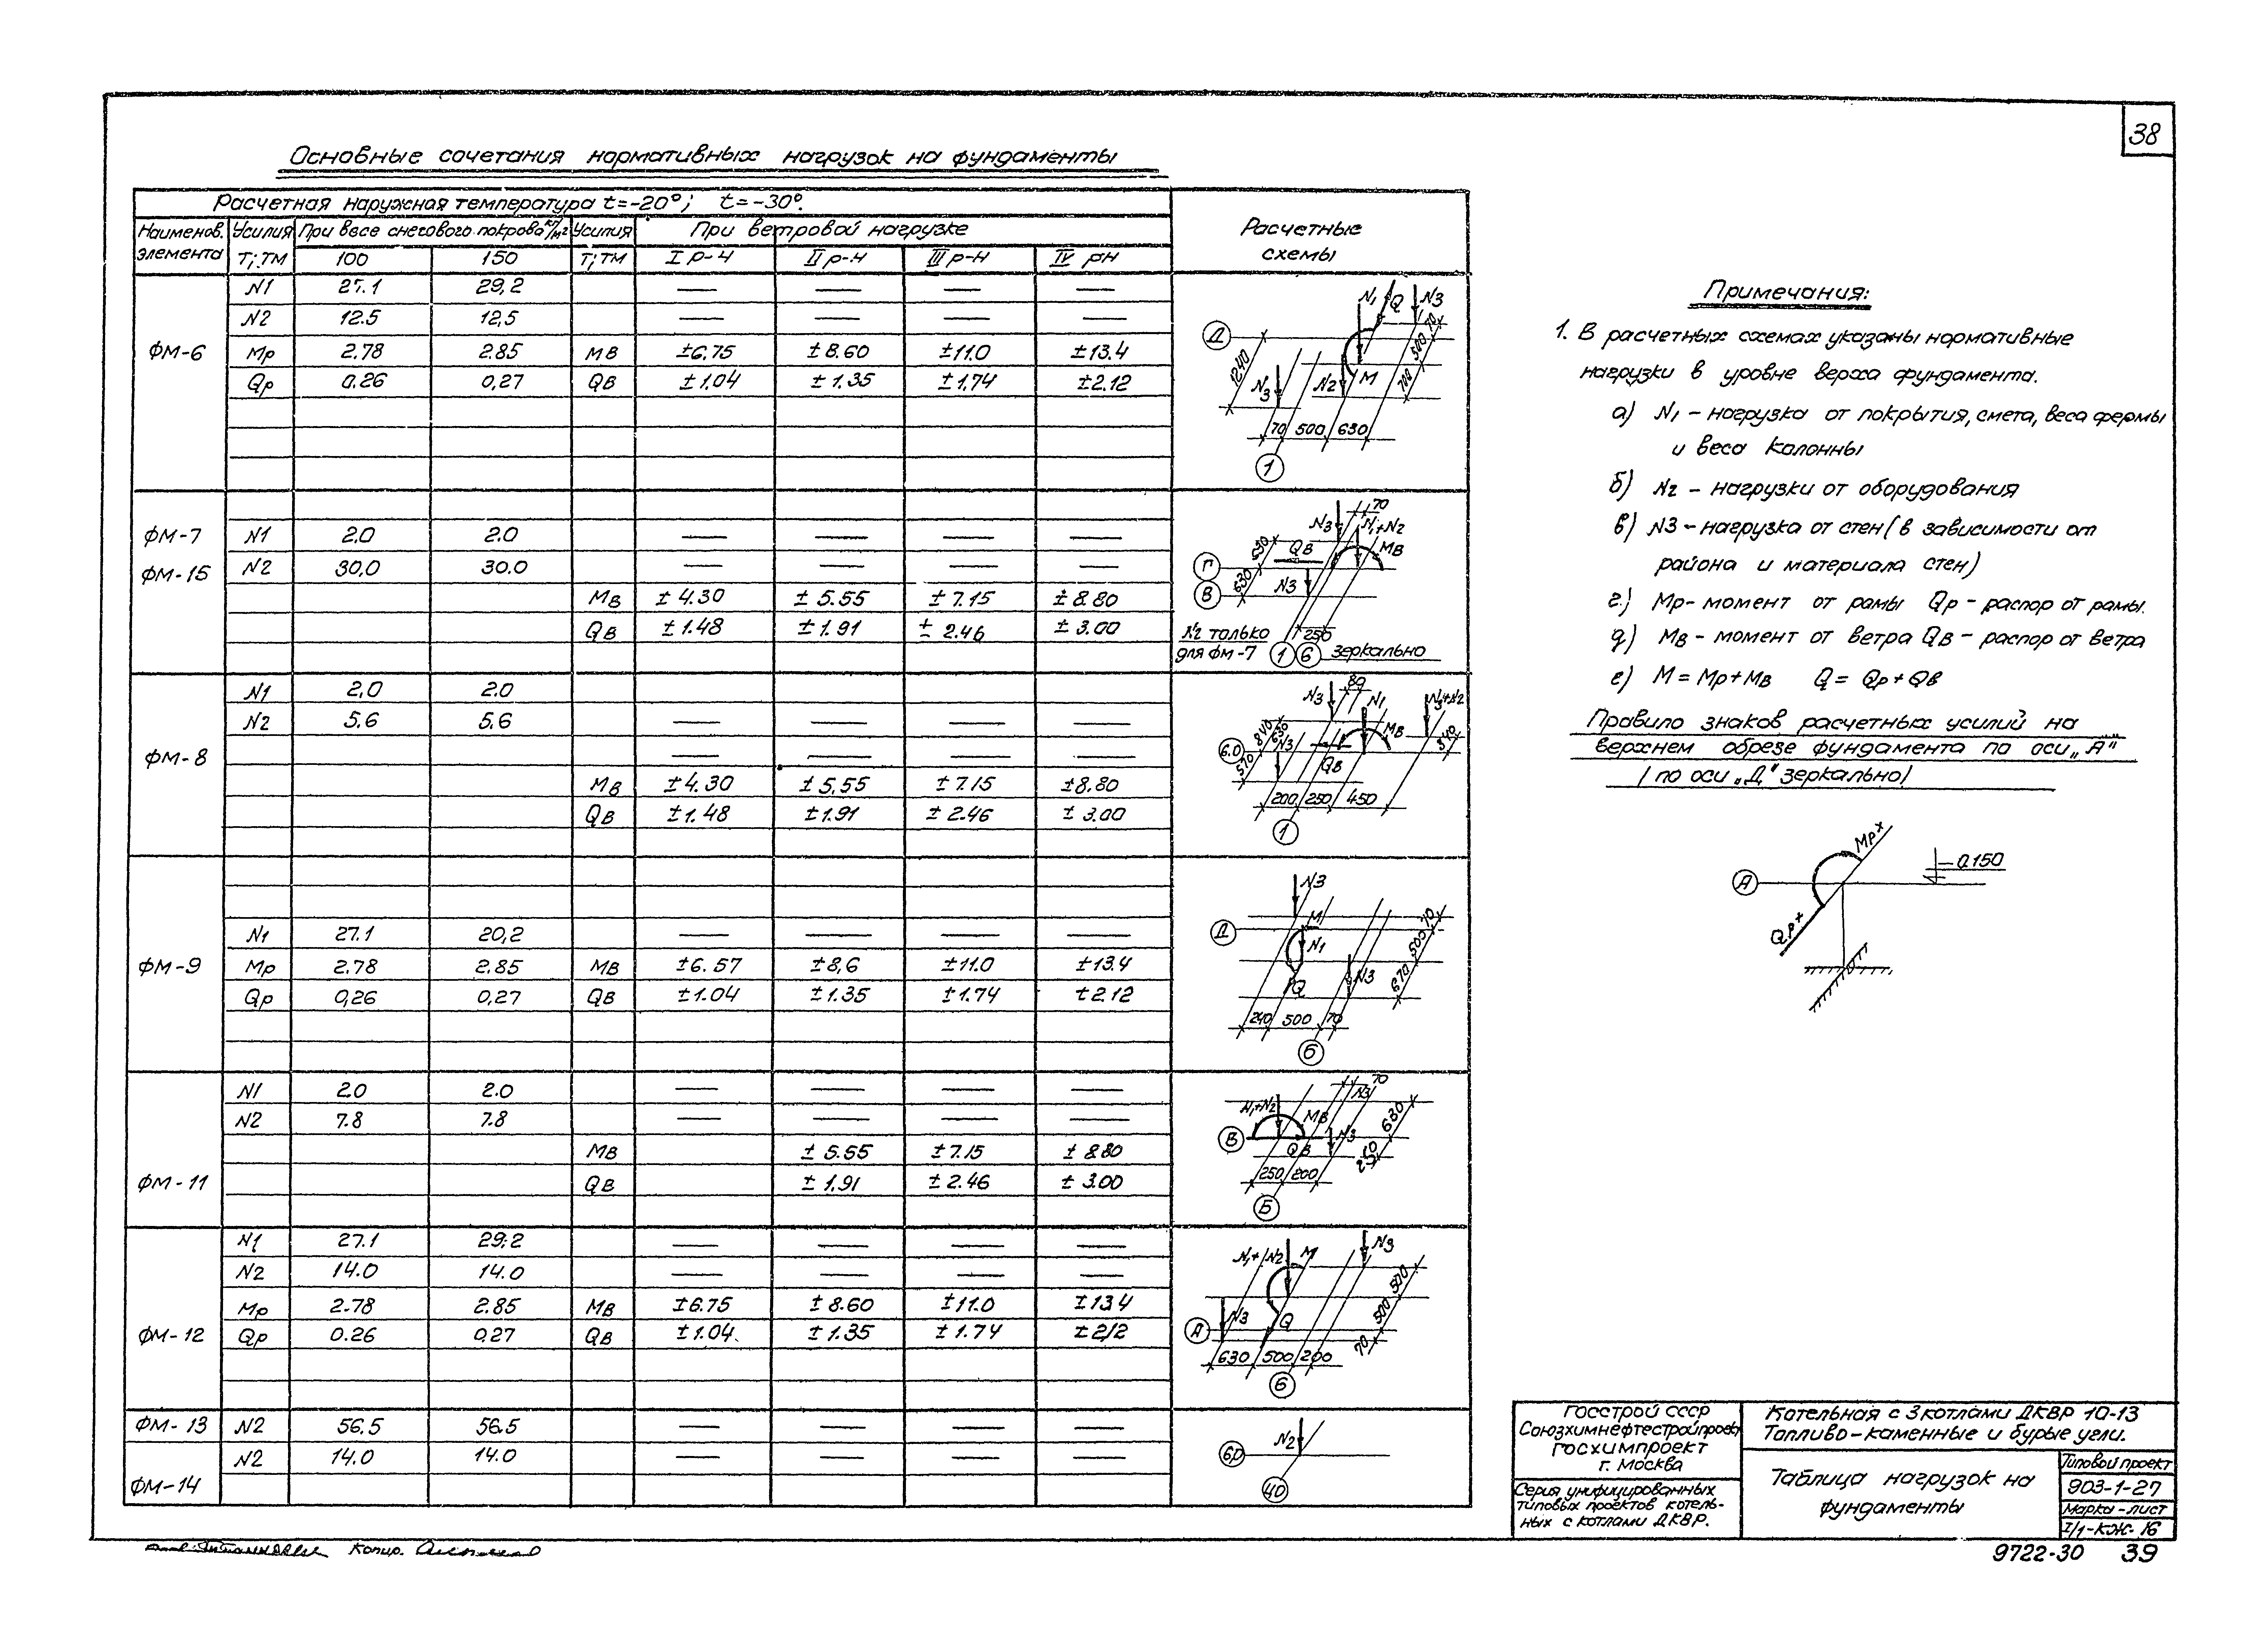 38
Основные сочетания нормативных нагрузок на фундаменты
Расчетная наружная температура t=-20°; t=-30°.
Расчетные схемы
Наименов. элемента Усилия Т; ТМ При весе снегового покрова кг/м² Усилия Т; ТМ При ветровой нагрузке
100 150 I р-н II р-н III р-н IV рн
ФМ-6
N1 27.1 29,2 — — — —
N2 12.5 12,5 — — — —
Мр 2.78 2.85 Мв ±6.75 ±8.60 ±11.0 ±13.4
Qр 0.26 0,27 Qв ±1.04 ±1.35 ±1.74 ±2.12
N1 Q N3
Д
1240 N3 N2 М 70 500 700
70 500 630
1
ФМ-7
ФМ-15
N1 2.0 2.0 — — — —
N2 30.0 30.0 — — — —
Мв ±4.30 ±5.55 ±7.15 ±8.80
Qв ±1.48 ±1.91 ±2.46 ±3.00
70
N3 N1+N2
630 Qв Мв
Г
630 N3
В
N2 только 250
для ФМ-7 1 6 зеркально
ФМ-8
N1 2,0 2.0
N2 5.6 5,6 — — — —
— — — —
Мв ±4.30 ±5,55 ±7.15 ±8.80
Qв ±1.48 ±1.91 ±2.46 ±3.00
80
N3 N1
840 630 Мв 340
6.0 N3
570 Qв
200 250 450
1
ФМ-9
N1 27.1 20,2 — — — —
Мр 2.78 2.85 Мв ±6.57 ±8,6 ±11.0 ±13.4
Qр 0,26 0,27 Qв ±1.04 ±1.35 ±1.74 ±2.12
N3
М
Д N1 70 500
N3 670
Q
240 500 70
6
ФМ-11
N1 2.0 2.0 — — — —
N2 7.8 7.8 — — — —
Мв ±5.55 ±7.15 ±8.80
Qв ±1.91 ±2.46 ±3.00
70
N1+N2 Мв N3 630
В Qв N3
250 200
Б
ФМ-12
N1 27.1 29.2 — — — —
N2 14.0 14.0 — — — —
Мр 2.78 2.85 Мв ±6.75 ±8.60 ±11.0 ±13.4
Qр 0.26 0.27 Qв ±1.04 ±1.35 ±1.74 ±2,12
N1+N2 М N3
500
А N3 Q 500
70
630 500 200
6
ФМ-13 N2 56.5 56.5 — — — —
ФМ-14 N2 14.0 14.0 — — — —
N2
60
40
Примечания:
1. В расчетных схемах указаны нормативные
нагрузки в уровне верха фундамента.
а) N1 - нагрузка от покрытия, смета, веса фермы
и веса колонны
б) N2 - нагрузки от оборудования
в) N3 - нагрузка от стен (в зависимости от
района и материала стен)
г.) Мр- момент от рамы Qр - распор от рамы.
д) Мв - момент от ветра Qв - распор от ветра
е) М = Мр + Мв Q = Qр + Qв
Правило знаков расчетных усилий на
верхнем обрезе фундамента по оси „А"
/ по оси „Д" зеркально/
Мр+
-0.150
А
Qр+
Госстрой СССР
Союзхимнефтестройпроект
Госхимпроект
г. Москва
Серия унифицированных
типовых проектов котель-
ных с котлами ДКВР.
Котельная с 3 котлами ДКВР 10-13
Топливо-каменные и бурые угли.
Таблица нагрузок на
фундаменты
Типовой проект
903-1-27
Марка - лист
I/1-КЖ-16
Копир.
9722-30 39